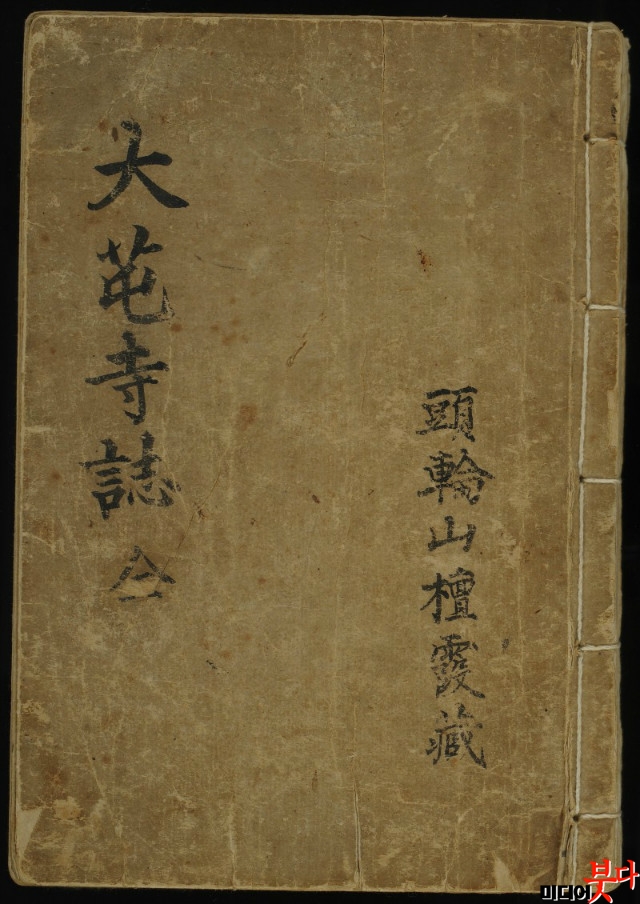 頭輪山檀霞藏
大芚寺誌 全
미디어붓다